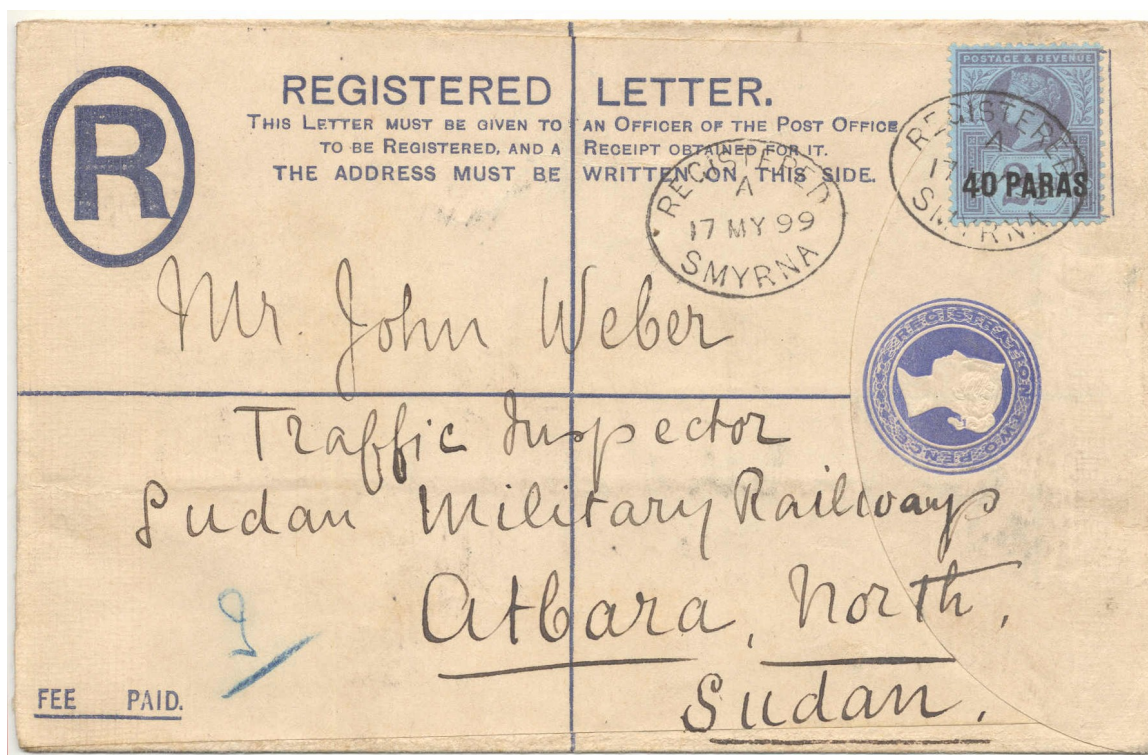 R
REGISTERED LETTER.
THIS LETTER MUST BE GIVEN TO AN OFFICER OF THE POST OFFICE
TO BE REGISTERED, AND A RECEIPT OBTAINED FOR IT.
THE ADDRESS MUST BE WRITTEN ON THIS SIDE.
POSTAGE & REVENUE
40 PARAS
REGISTERED
A
17
SMYRNA
REGISTERED
A
17 MY 99
SMYRNA
REGISTRATION TWO PENCE
Mr. John Weber
Traffic Inspector
Sudan Military Railways
Atbara, North,
Sudan.
FEE PAID.